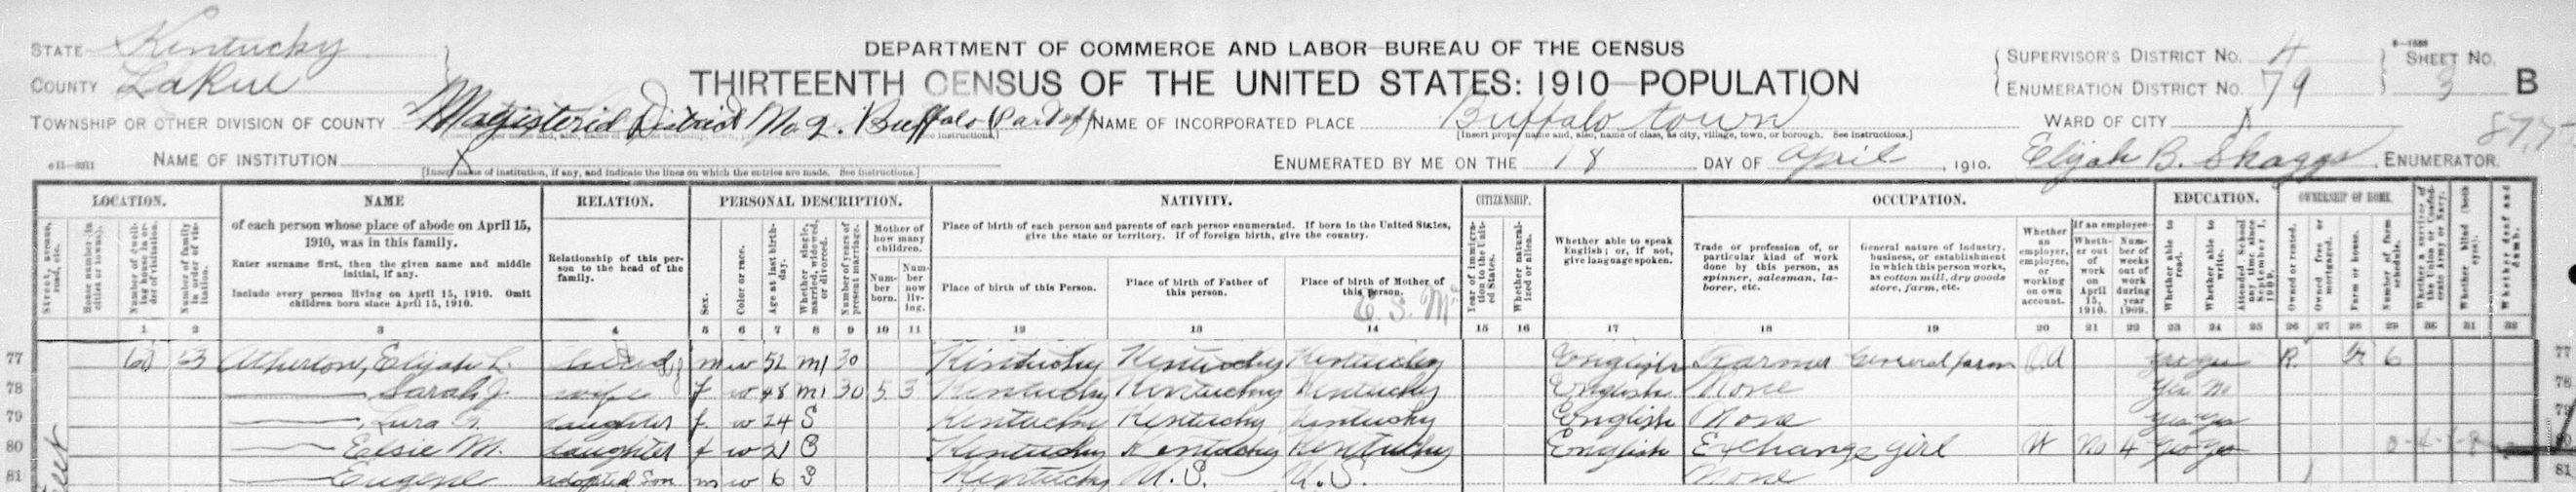 STATE Kentucky
COUNTY LaRue
TOWNSHIP OR OTHER DIVISION OF COUNTY Magisterial District No 2. Buffalo (Part of)
NAME OF INSTITUTION X
[Insert name of institution, if any, and indicate the lines on which the entries are made. See instructions.]
DEPARTMENT OF COMMERCE AND LABOR—BUREAU OF THE CENSUS
THIRTEENTH CENSUS OF THE UNITED STATES: 1910—POPULATION
NAME OF INCORPORATED PLACE Buffalo town
[Insert proper name and, also, name of class, as city, village, town, or borough. See instructions.]
ENUMERATED BY ME ON THE 18 DAY OF April, 1910. Elijah B. Skaggs, ENUMERATOR.
SUPERVISOR'S DISTRICT No. 4
ENUMERATION DISTRICT No. 79
SHEET No. 3 B
WARD OF CITY X
LOCATION. NAME RELATION. PERSONAL DESCRIPTION. NATIVITY. CITIZENSHIP. OCCUPATION. EDUCATION. OWNERSHIP OF HOME.
Street, avenue, road, etc.
House number (in cities or towns).
Number of dwelling house in order of visitation.
Number of family in order of visitation.
of each person whose place of abode on April 15, 1910, was in this family.
Enter surname first, then the given name and middle initial, if any.
Include every person living on April 15, 1910. Omit children born since April 15, 1910.
Relationship of this person to the head of the family.
Sex.
Color or race.
Age at last birthday.
Whether single, married, widowed, or divorced.
Number of years of present marriage.
Mother of how many children.
Number born.
Number now living.
Place of birth of each person and parents of each person enumerated. If born in the United States, give the state or territory. If of foreign birth, give the country.
Place of birth of this Person.
Place of birth of Father of this person.
Place of birth of Mother of this person.
Year of immigration to the United States.
Whether naturalized or alien.
Whether able to speak English; or, if not, give language spoken.
Trade or profession of, or particular kind of work done by this person, as spinner, salesman, laborer, etc.
General nature of industry, business, or establishment in which this person works, as cotton mill, dry goods store, farm, etc.
Whether an employer, employee, or working on own account.
If an employee—
Whether out of work on April 15, 1910.
Number of weeks out of work during year 1909.
Whether able to read.
Whether able to write.
Attended school any time since September 1, 1909.
Owned or rented.
Owned free or mortgaged.
Farm or house.
Number of farm schedule.
Whether a survivor of the Union or Confederate Army or Navy.
Whether blind (both eyes).
Whether deaf and dumb.
1 2 3 4 5 6 7 8 9 10 11 12 13 14 15 16 17 18 19 20 21 22 23 24 25 26 27 28 29 30 31 32
77 63 Atherton, Elijah L. head m w 52 m1 30 Kentucky Kentucky Kentucky English Farmer General farm O.A yes yes R. 6 77
78 Sarah J. wife f w 48 m1 30 5 3 Kentucky Kentucky Kentucky English None Yes No 78
79 daughter f w 24 S Kentucky Kentucky Kentucky English None yes yes 79
80 Elsie M. daughter f w 21 S Kentucky Kentucky Kentucky English Exchange girl W No 4 yes yes
81 Eugene adopted Son m w 6 S Kentucky U.S. U.S. None 81